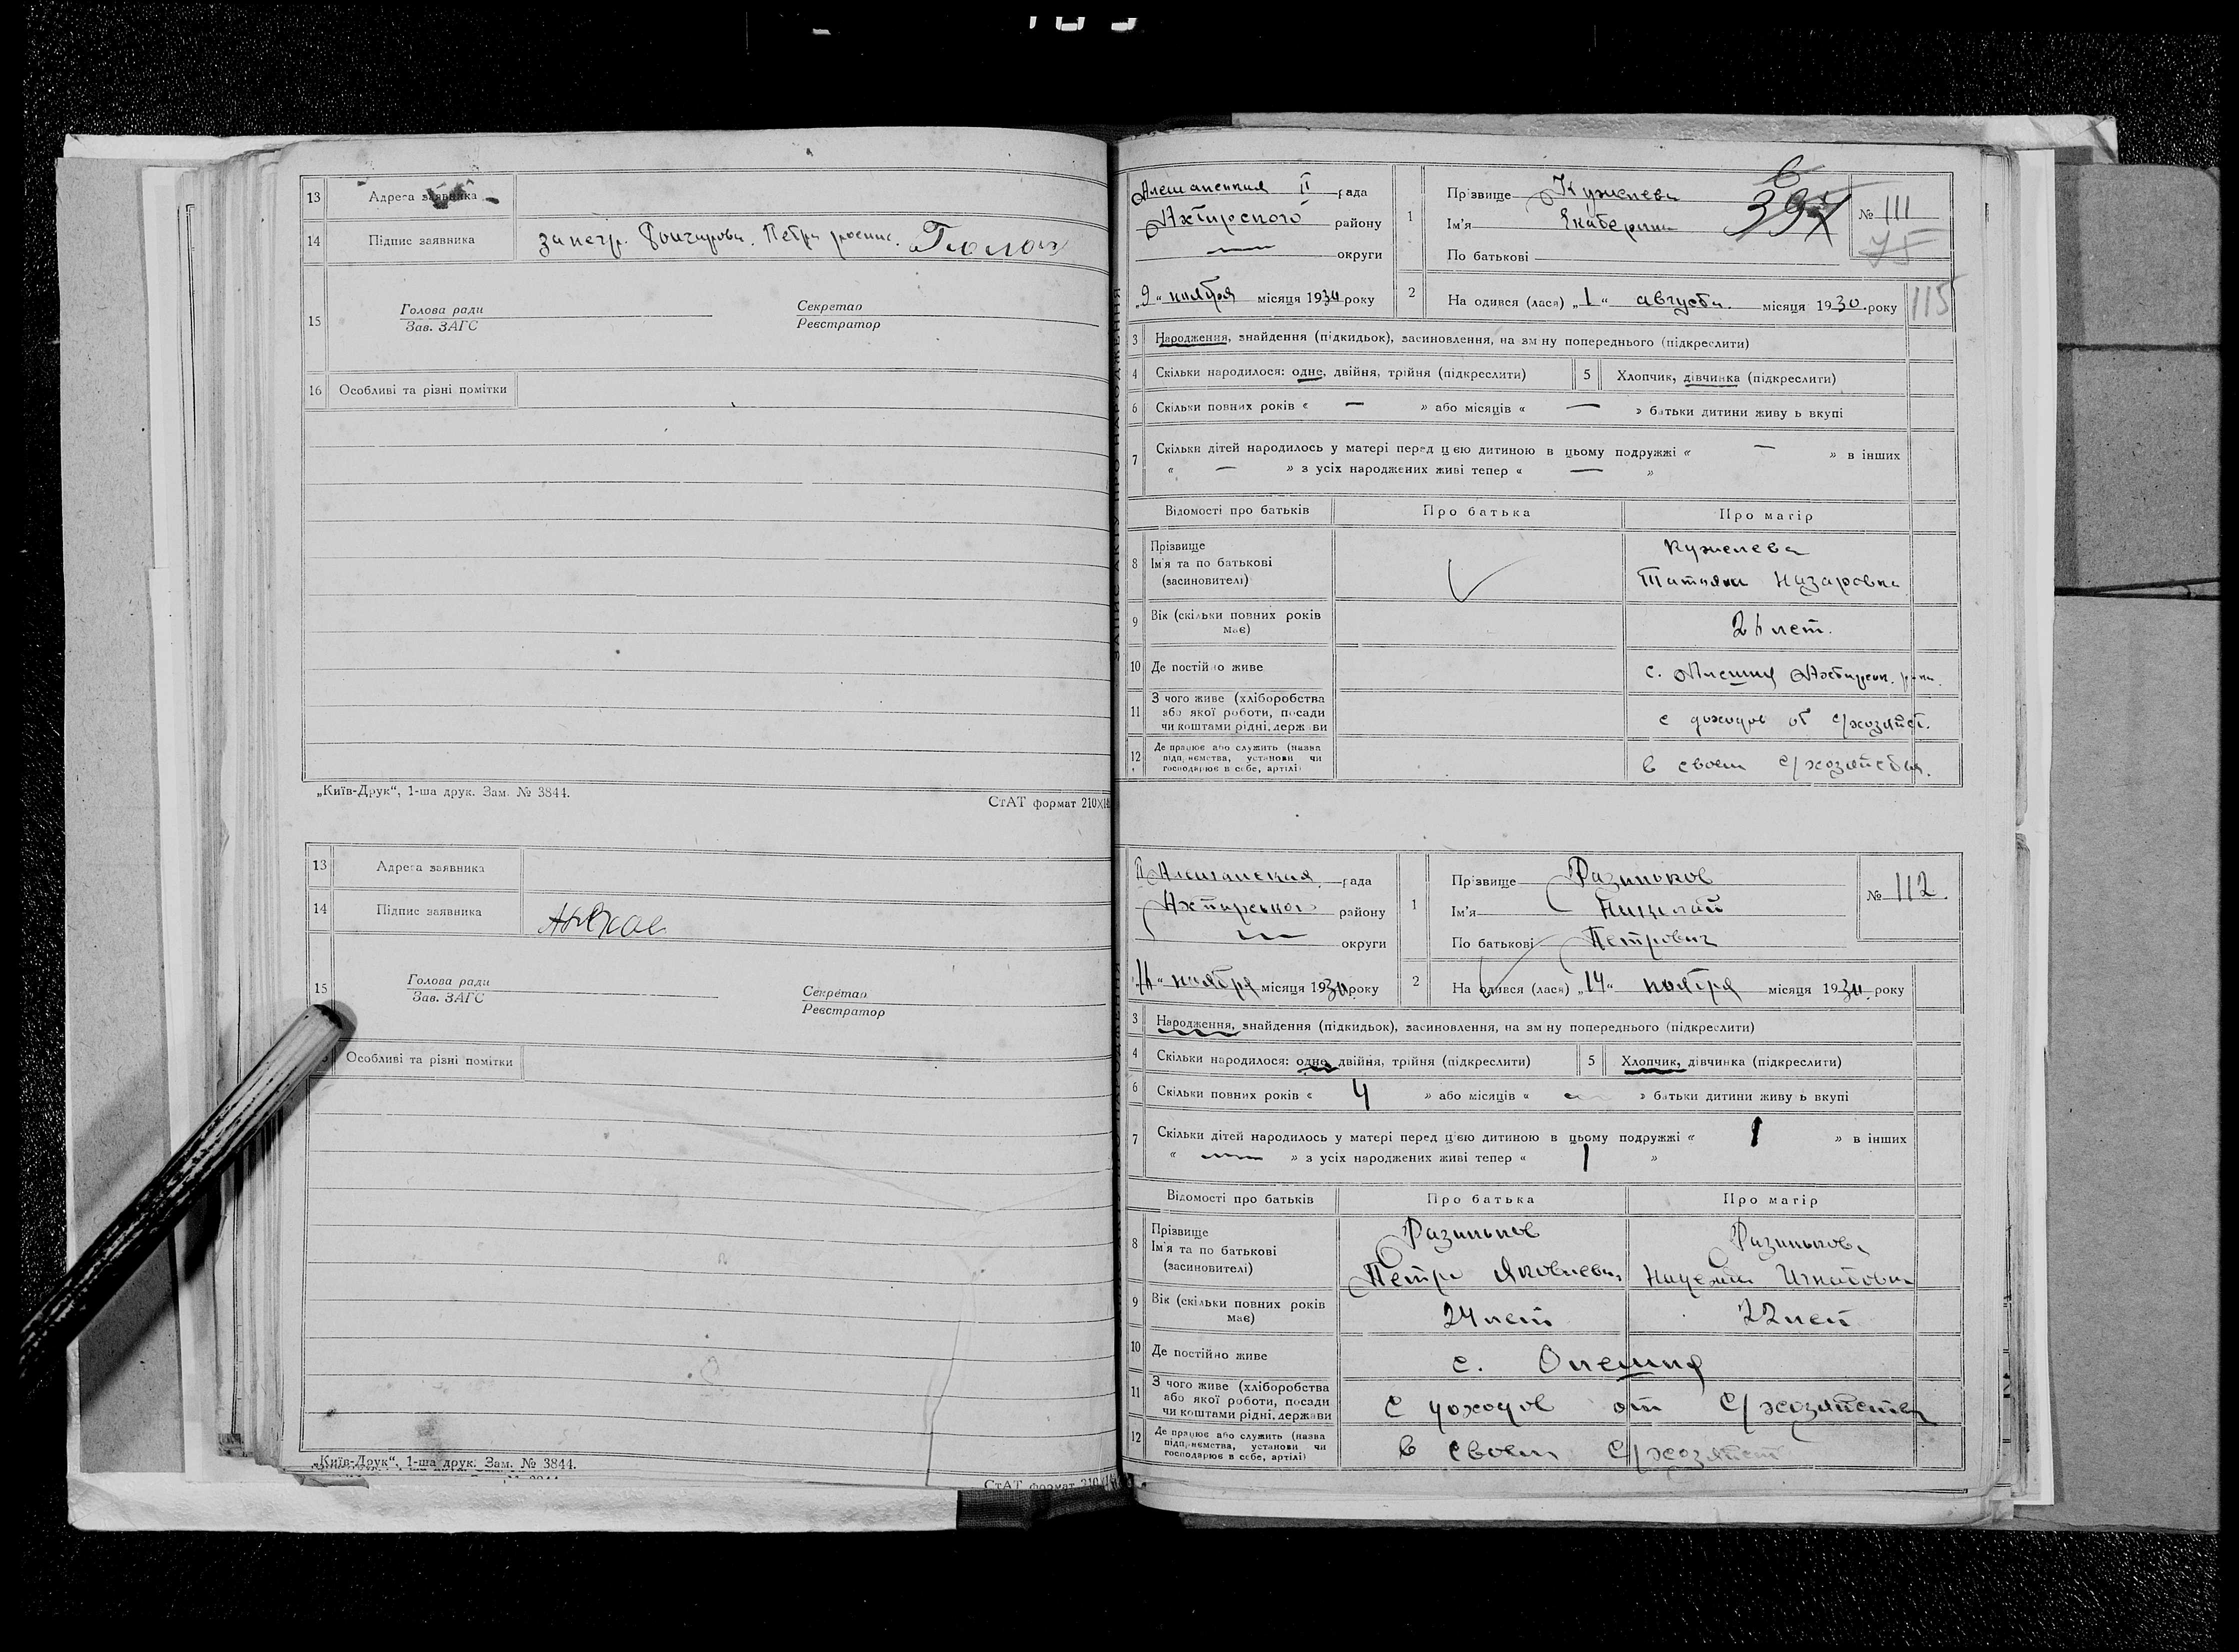 13 Адреса заявника
14 Підпис заявника за негр. Гончарова Петра роспис.
15 Голова ради Секретар
Зав. ЗАГС Реєстратор
16 Особливі та різні помітки
„Київ-Друк“, 1-ша друк. Зам. № 3844.
СтАТ формат 210×14
13 Адреса заявника
14 Підпис заявника
15 Голова ради Секретар
Зав. ЗАГС Реєстратор
Особливі та різні помітки
„Київ-Друк“, 1-ша друк. Зам. № 3844.
СтАТ формат 210
Алешанская II рада
Ахтирского району
— округи
„9“ ноября місяця 1930 року
1 Прізвище Кужелева
Ім'я Екатерина
По батькові
397
№ 111
75
2 На одився (лася) „1“ августа місяця 1930 року
115
3 Народження, знайдення (підкидьок), засиновлення, на зм ну попереднього (підкреслити)
4 Скільки народилося: одне, двійня, трійня (підкреслити) 5 Хлопчик, дівчинка (підкреслити)
6 Скільки повних років « — » або місяців « — » батьки дитини живу ь вкупі
7 Скільки дітей народилось у матері перед ц єю дитиною в цьому подружжі « — » в інших
« — » з усіх народжених живі тепер « — »
Відомості про батьків Про батька Про матір
8 Прізвище Кужелева
Ім'я та по батькові Татияна Назаровна
(засиновителі)
9 Вік (скільки повних років лет.
має)
10 Де постійно живе с. Алешня Ахтирск. р-на.
11 З чого живе (хліборобства
або якої роботи, посади с доходов от с/хозяйст.
чи коштами рідні, держ ви
12 Де працює або служить (назва
підпр иємства, установи чи в своем с/хозяйстве.
господарює в себе, артілі)
II Алешанская рада
Ахтирського району
— округи
місяця 1930 року
ноября
1 Прізвище Разиньков
Ім'я Николай
По батькові Петрович
№ 112
2 На одився (лася) „14“ ноября місяця 1930 року
3 Народження, знайдення (підкидьок), засиновлення, на зм ну попереднього (підкреслити)
4 Скільки народилося: одне, двійня, трійня (підкреслити) 5 Хлопчик, дівчинка (підкреслити)
6 Скільки повних років « 4 » або місяців « — » батьки дитини живу ь вкупі
7 Скільки дітей народилось у матері перед ц єю дитиною в цьому подружжі « 1 » в інших
« — » з усіх народжених живі тепер « 1 »
Відомості про батьків Про батька Про матір
8 Прізвище Разиньков Разинькова
Ім'я та по батькові Петро Яковлевич Надежда Игнатовна
(засиновителі)
9 Вік (скільки повних років 24 лет 22 лет
має)
10 Де постійно живе с. Олешня
11 З чого живе (хліборобства
або якої роботи, посади с доходов от с/хозяйства
чи коштами рідні, держави
12 Де працює або служить (назва
підпр иємства, установи чи в своем с/хозяйст
господарює в себе, артілі)